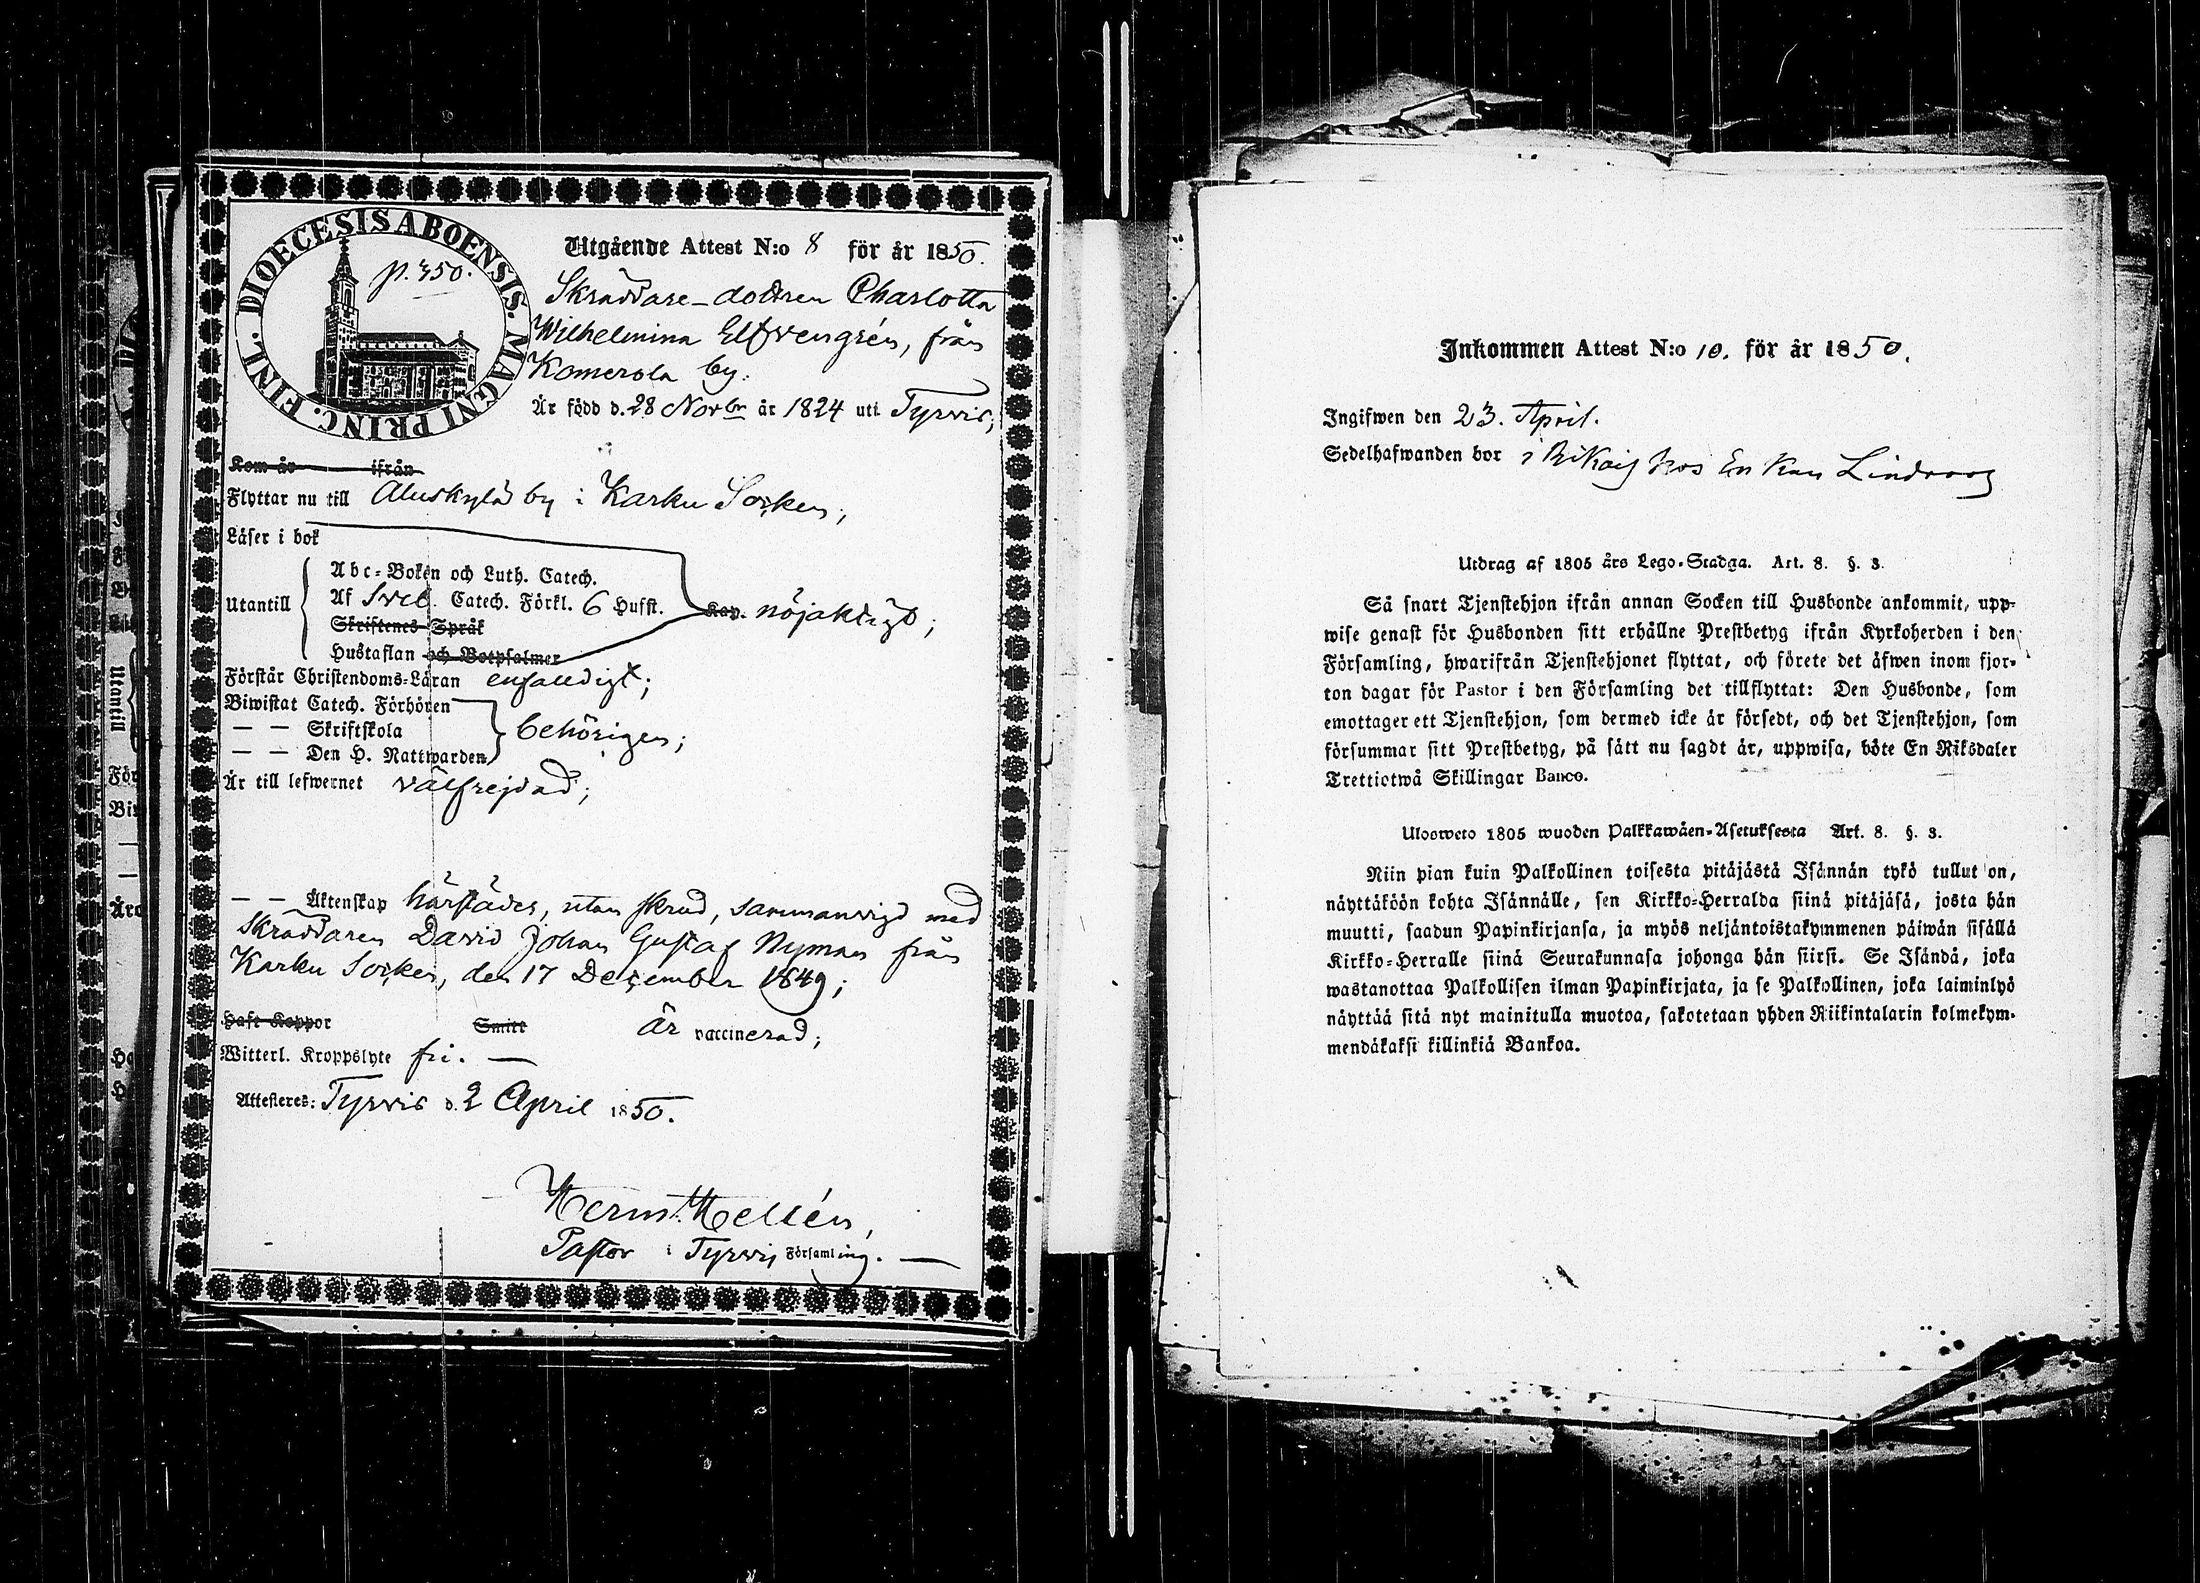 DIOECESIS ABOENSIS. MAGNI PRINC. FINL.
p. 450.
Utgående Attest N:o 8 för år 1850.
Skräddare-dottren Charlotta
Wilhelmina Elfvengrén, från
Komerola by.
Är född d. 28 Novbr år 1824 uti Tyrvis;
Kom år ifrån
Flyttar nu till Aluskylä by i Karku Socken;
Läser i bok
Utantill
Abc-Boken och Luth. Catech.
Af Sveb. Catech. Förkl. 6 Hufst. Kap. nöjaktigt;
Skriftenes Språk
Hustaflan och Botpsalmer
Förstår Christendoms-Läran enfaldigt;
Biwistat Catech. Förhören
— — Skriftskola behörigen;
— — Den H. Nattwarden
Är till lefwernet välfrejdad;
— — Äktenskap härstädes, utan skrud, sammanvigd med
Skräddaren David Johan Gustaf Nyman från
Karku Socken, den 17 December 1849;
Haft Koppor Smitt Är vaccinerad;
Witterl. Kroppslyte fri. —
Attesteres: Tyrvis d. 2 April 1850.
Herm. Hellén,
Pastor i Tyrvis Församling. —
Inkommen Attest N:o 10. för år 1850.
Ingifwen den 23. April.
Sedelhafwanden bor i hos Enkan Lindroos
Utdrag af 1805 års Lego-Stadga. Art. 8. §. 3.
Så snart Tjenstehjon ifrån annan Socken till Husbonde ankommit, upp-
wise genast för Husbonden sitt erhållne Prestbetyg ifrån Kyrkoherden i den
Församling, hwarifrån Tjenstehjonet flyttat, och förete det äfwen inom fjor-
ton dagar för Pastor i den Församling det tillflyttat: Den Husbonde, som
emottager ett Tjenstehjon, som dermed icke är försedt, och det Tjenstehjon, som
försummar sitt Prestbetyg, på sätt nu sagdt är, uppwisa, böte En Riksdaler
Trettiotwå Skillingar Banco.
Ulosweto 1805 wuoden Palkkawäen-Asetuksesta Art. 8. §. 3.
Niin pian kuin Palkollinen toisesta pitäjästä Isännän tykö tullut on,
näyttäköön kohta Isännälle, sen Kirkko-Herralda siinä pitäjäsä, josta hän
muutti, saadun Papinkirjansa, ja myös neljäntoistakymmenen päiwän sisällä
Kirkko-Herralle siinä Seurakunnasa johonga hän siirsi. Se Isändä, joka
wastanottaa Palkollisen ilman Papinkirjata, ja se Palkollinen, joka laiminlyö
näyttää sitä nyt mainitulla muotoa, sakotetaan yhden Riikintalarin kolmekym-
mendäkaksi killinkiä Bankoa.